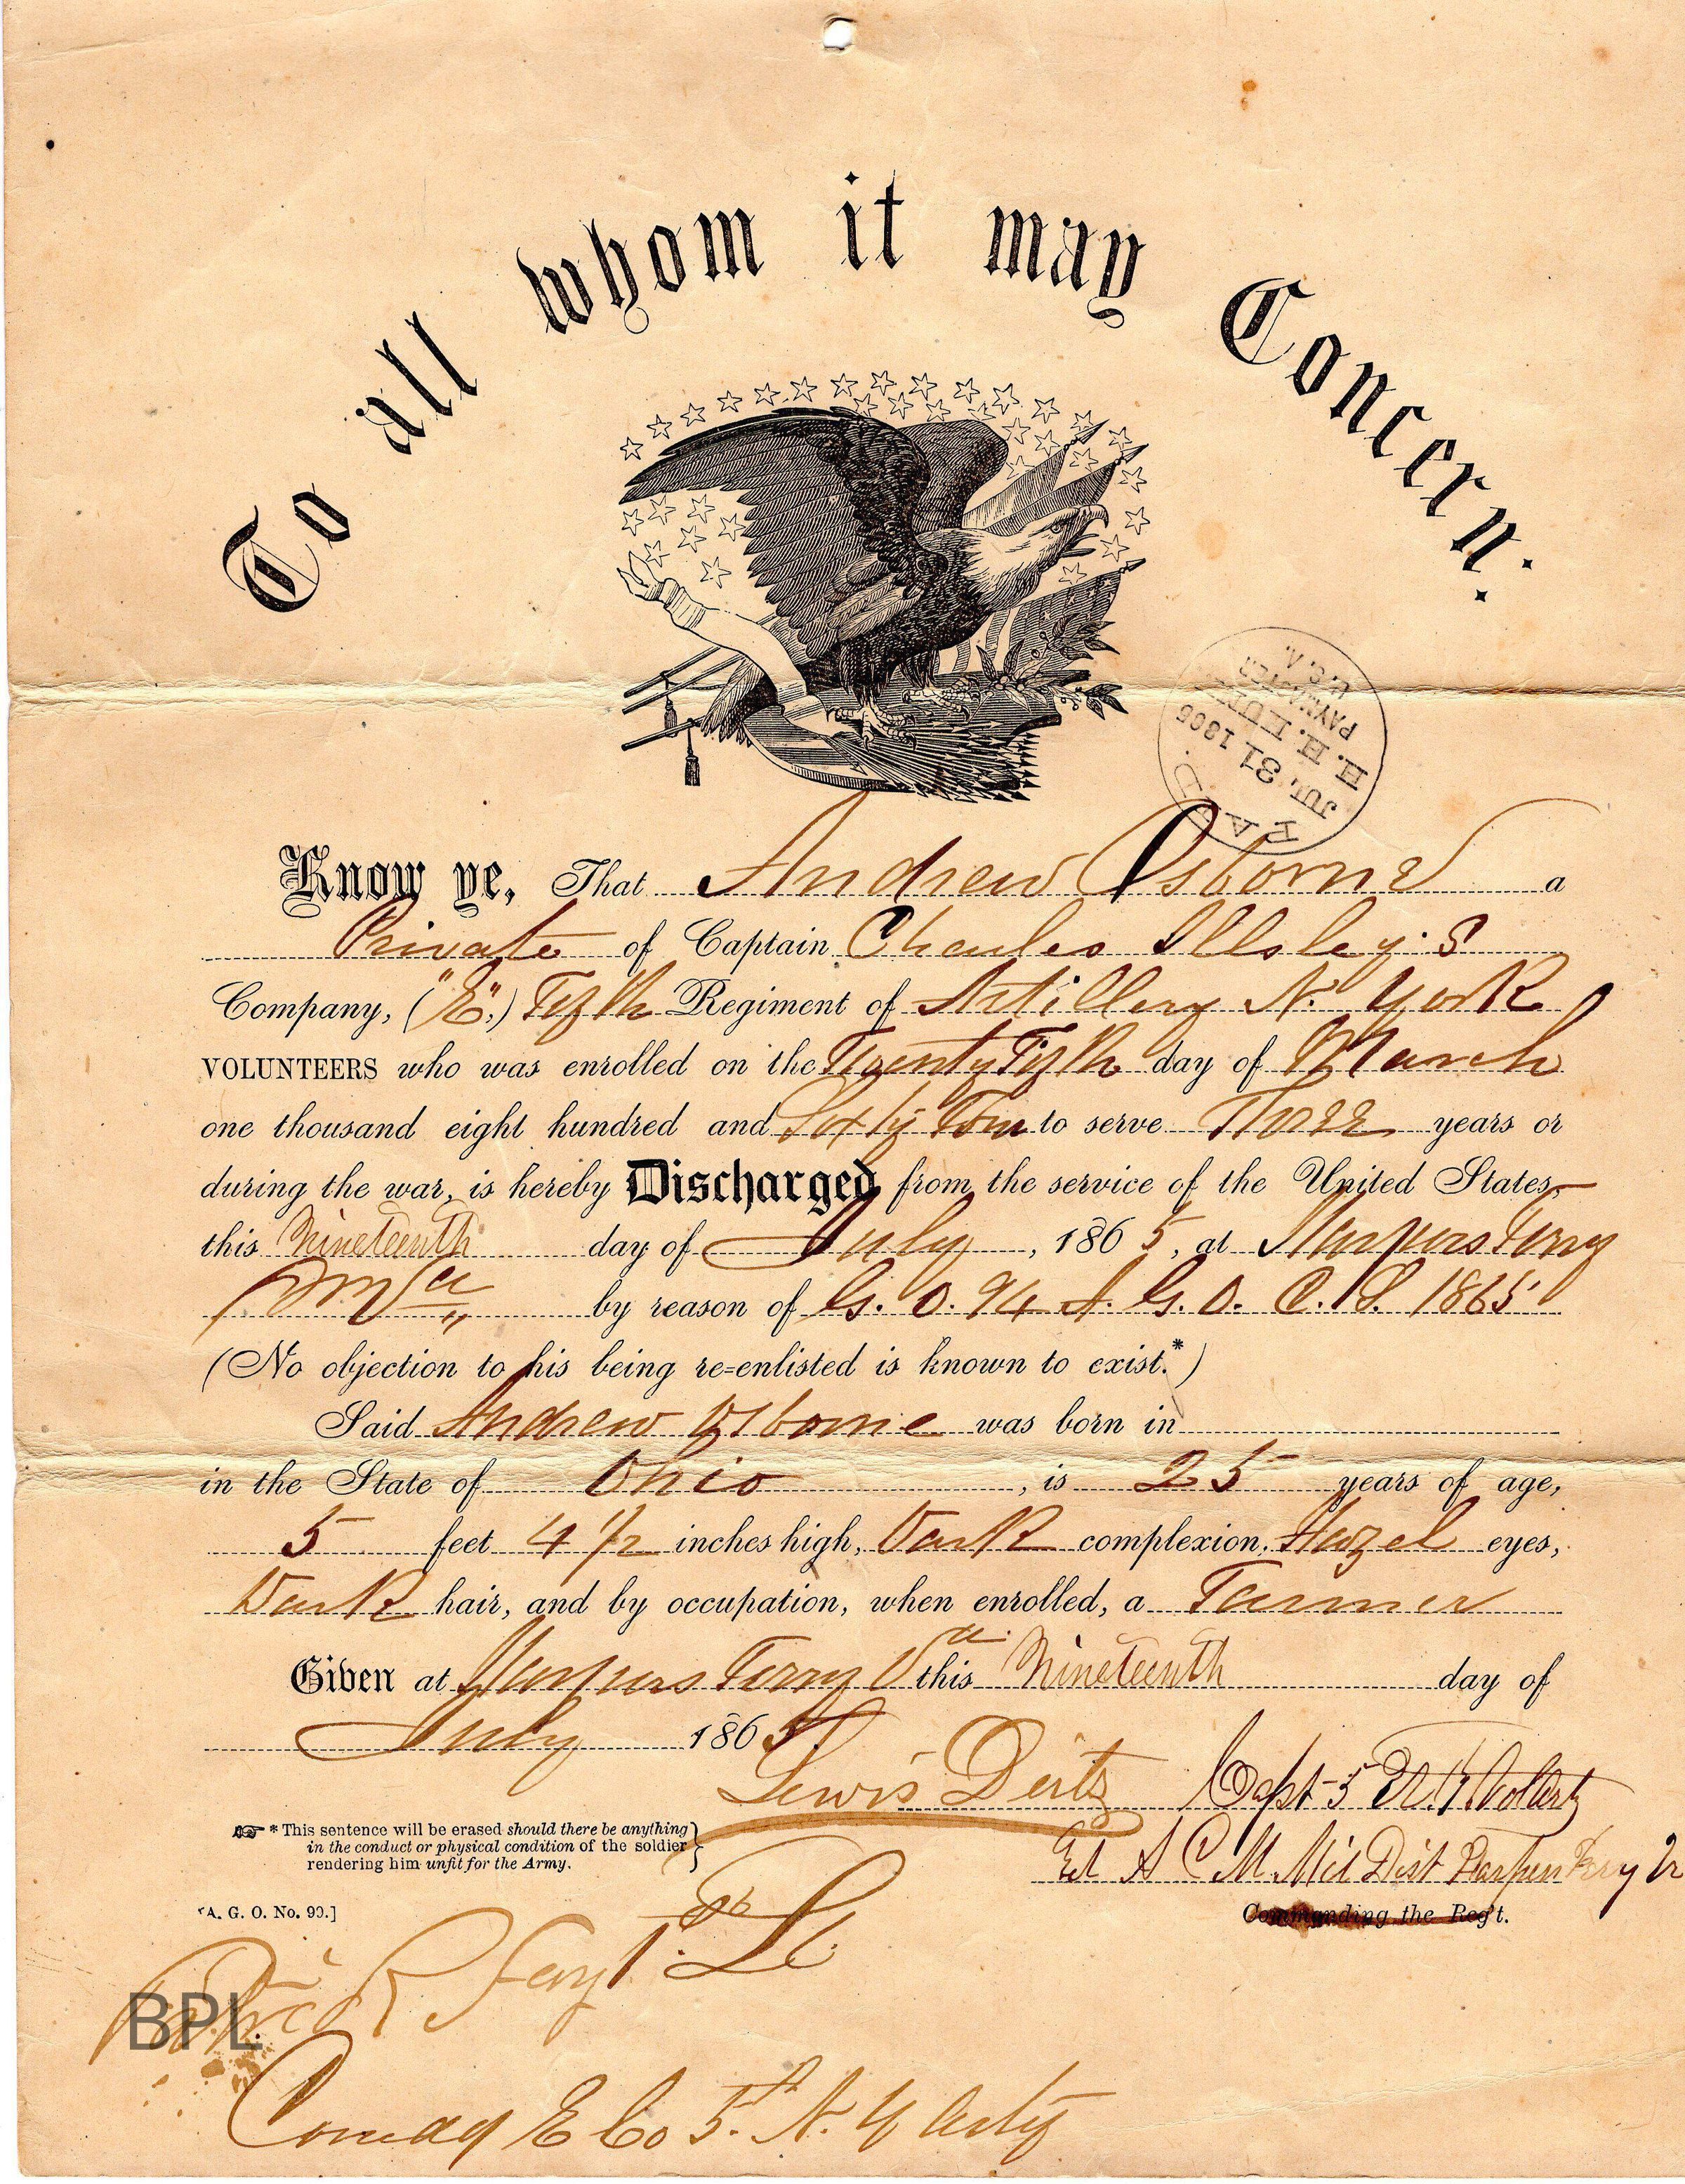 To all whom it may Concern:
PAID
JUL 31 1865
H. H.
PAYMASTER
U.S.A.
Know ye, That Andrew Osborne a
Private of Captain Charles Illsley's
Company, ("E",) Fifth Regiment of Artillery N. York
VOLUNTEERS who was enrolled on the Twenty Fifth day of March
one thousand eight hundred and Sixty Four to serve Three years or
during the war, is hereby Discharged from the service of the United States,
this Nineteenth day of July, 1865, at Harpers Ferry
Va by reason of G. O. 94 A. G. O. C. S. 1865
(No objection to his being re-enlisted is known to exist.*)
Said Andrew Osborne was born in
in the State of Ohio, is 25 years of age,
5 feet 4 1/2 inches high, Dark complexion, Hazel eyes,
Dark hair, and by occupation, when enrolled, a Farmer
Given at Harpers Ferry Va this Nineteenth day of
July 1865.
Lewis Dertz Capt 5
* This sentence will be erased should there be anything
in the conduct or physical condition of the soldier
rendering him unfit for the Army.
A C M Mil Dist Harpers Ferry
[A. G. O. No. 99.]
Commanding the Reg't.
1st Lt.
Comdg E Co 5th N. Y Arty
BPL